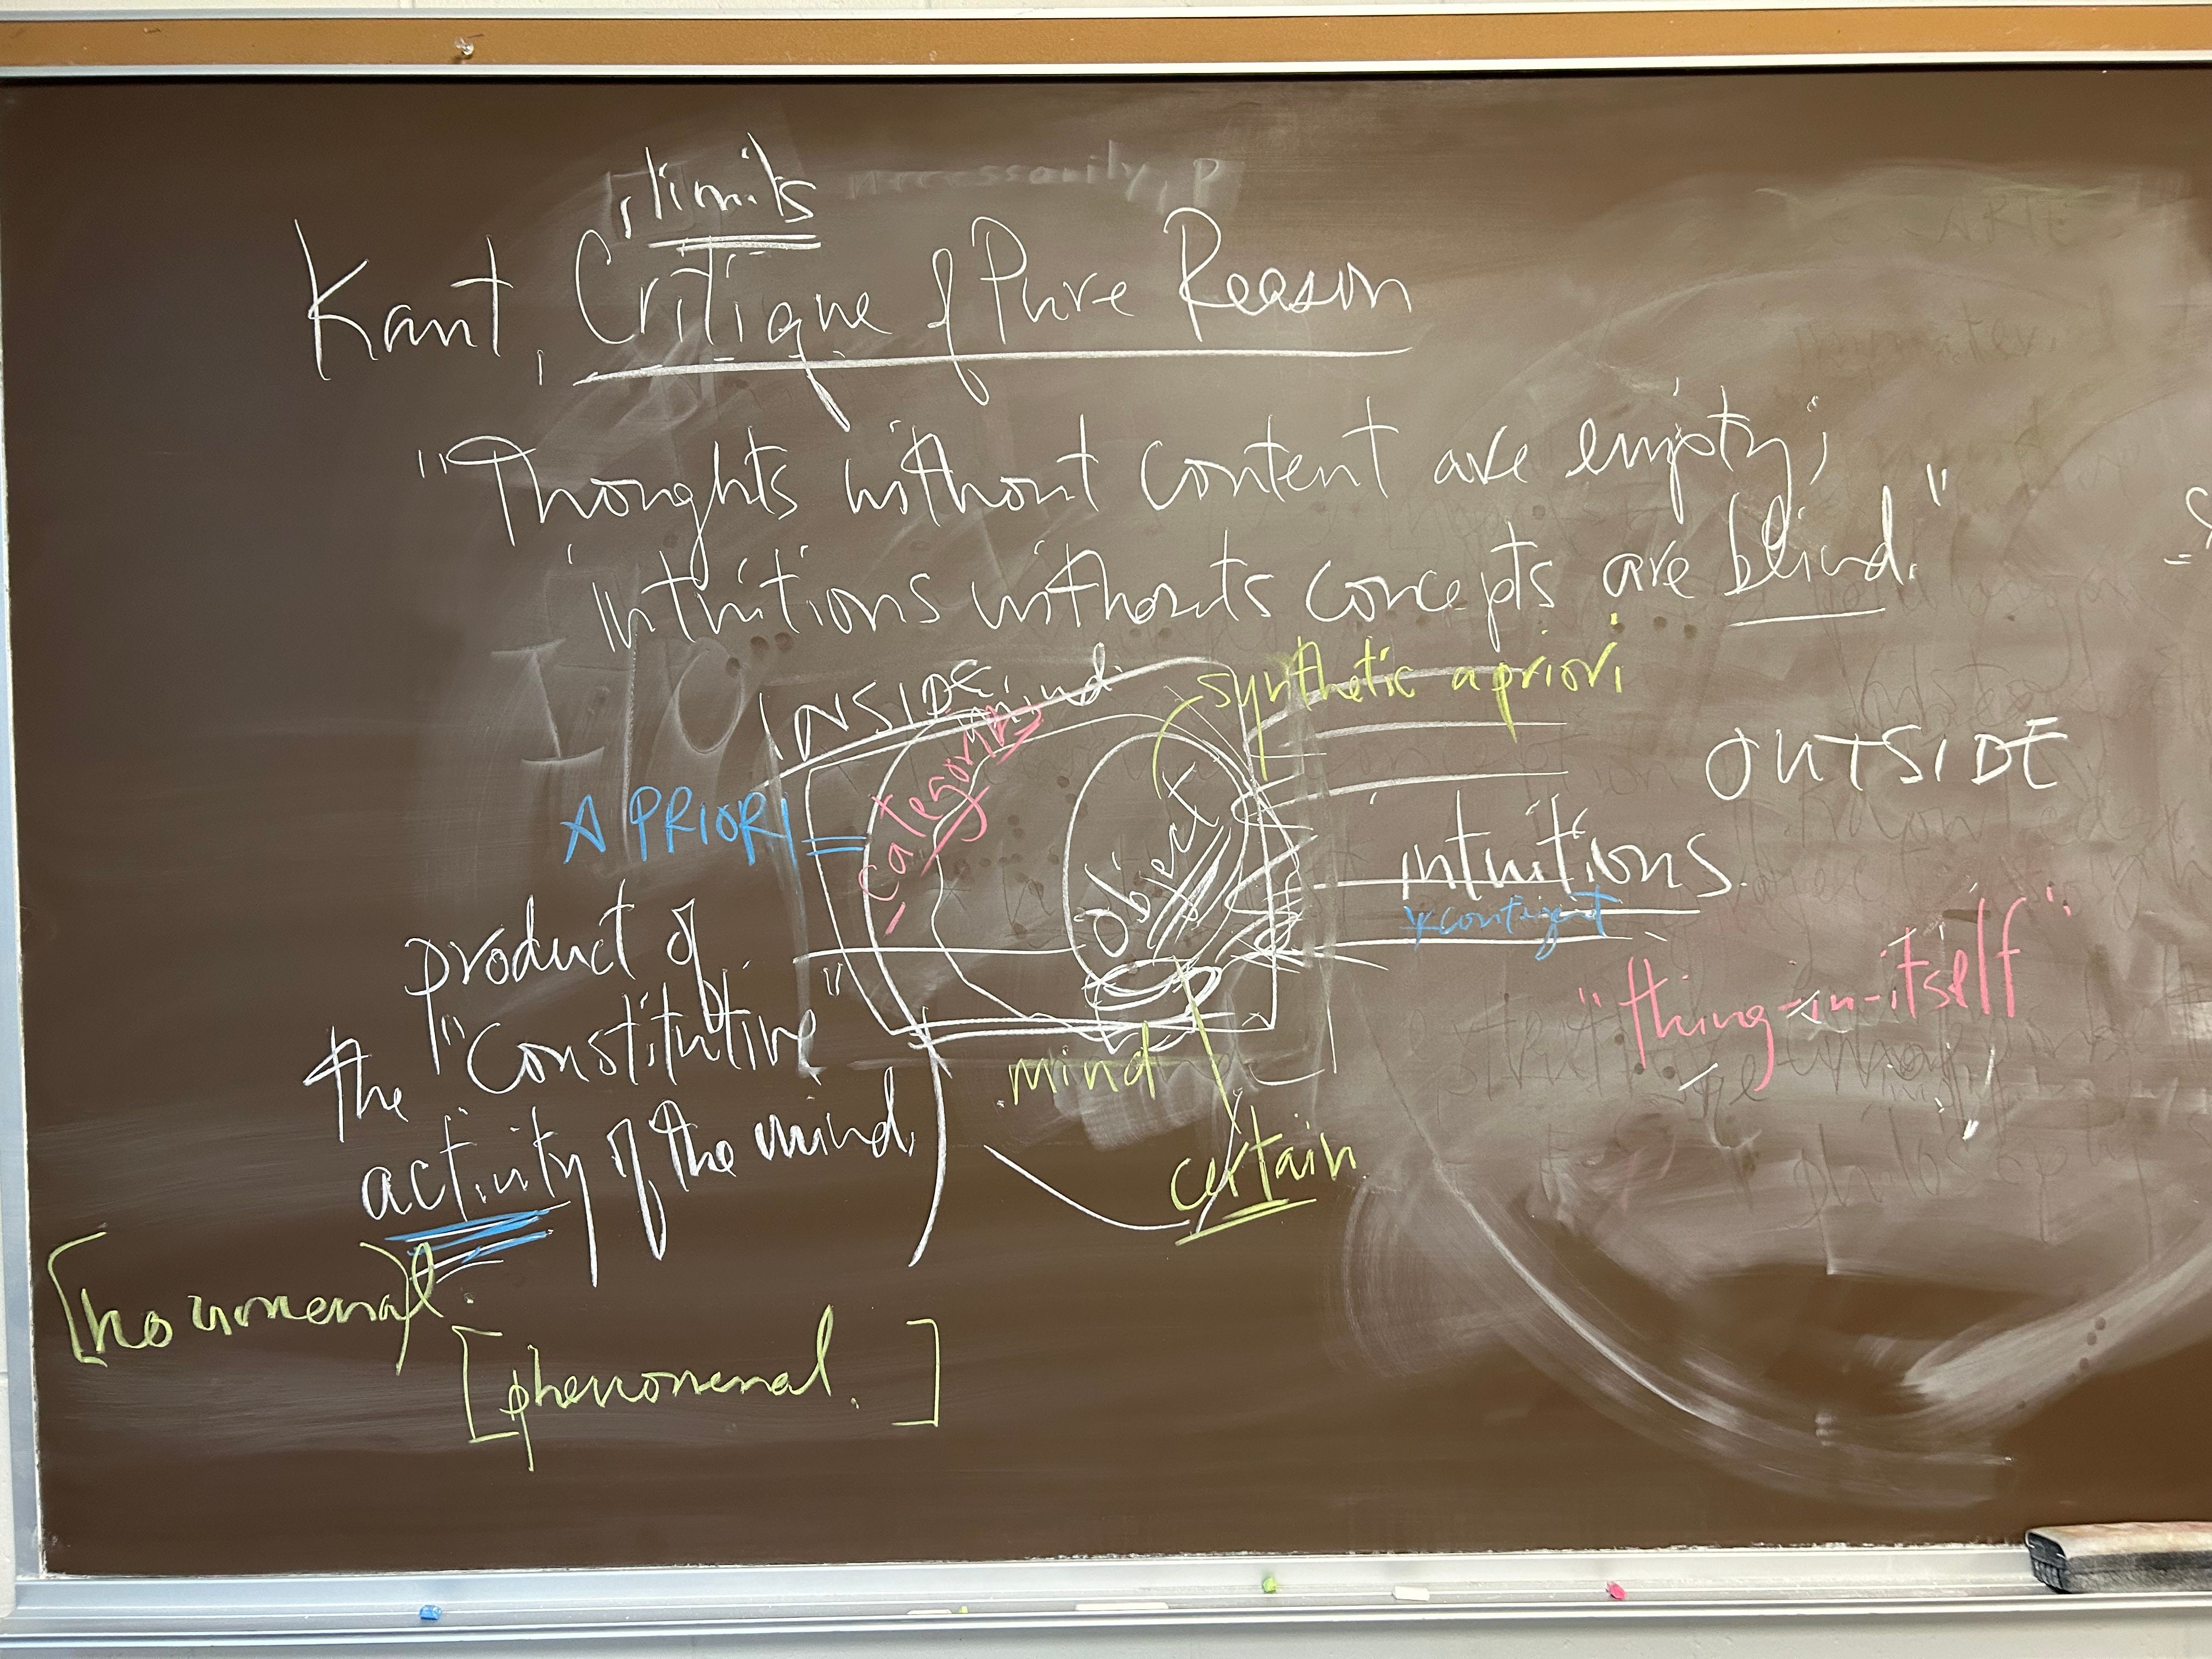 limits
Kant, Critique of Pure Reason
"Thoughts without content are empty;
intuitions withouts concepts are blind."
INSIDE mind
synthetic a priori
OUTSIDE
categories
A PRIORI
object
intuitions
contigent
product of
the "Constitutive"
activity of the mind
"thing-in-itself"
mind
certain
[noumenal]
[phenomenal.]
necessarily, P
I/O